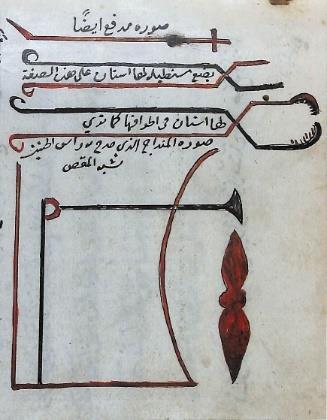 صوره مدفع ايضًا
مستطيله لها اسنان على هذه الصفة
لها اسنان فى اطرافها كما ترى
صورة المشداخ الذى به راس الجنين
شبه المقص